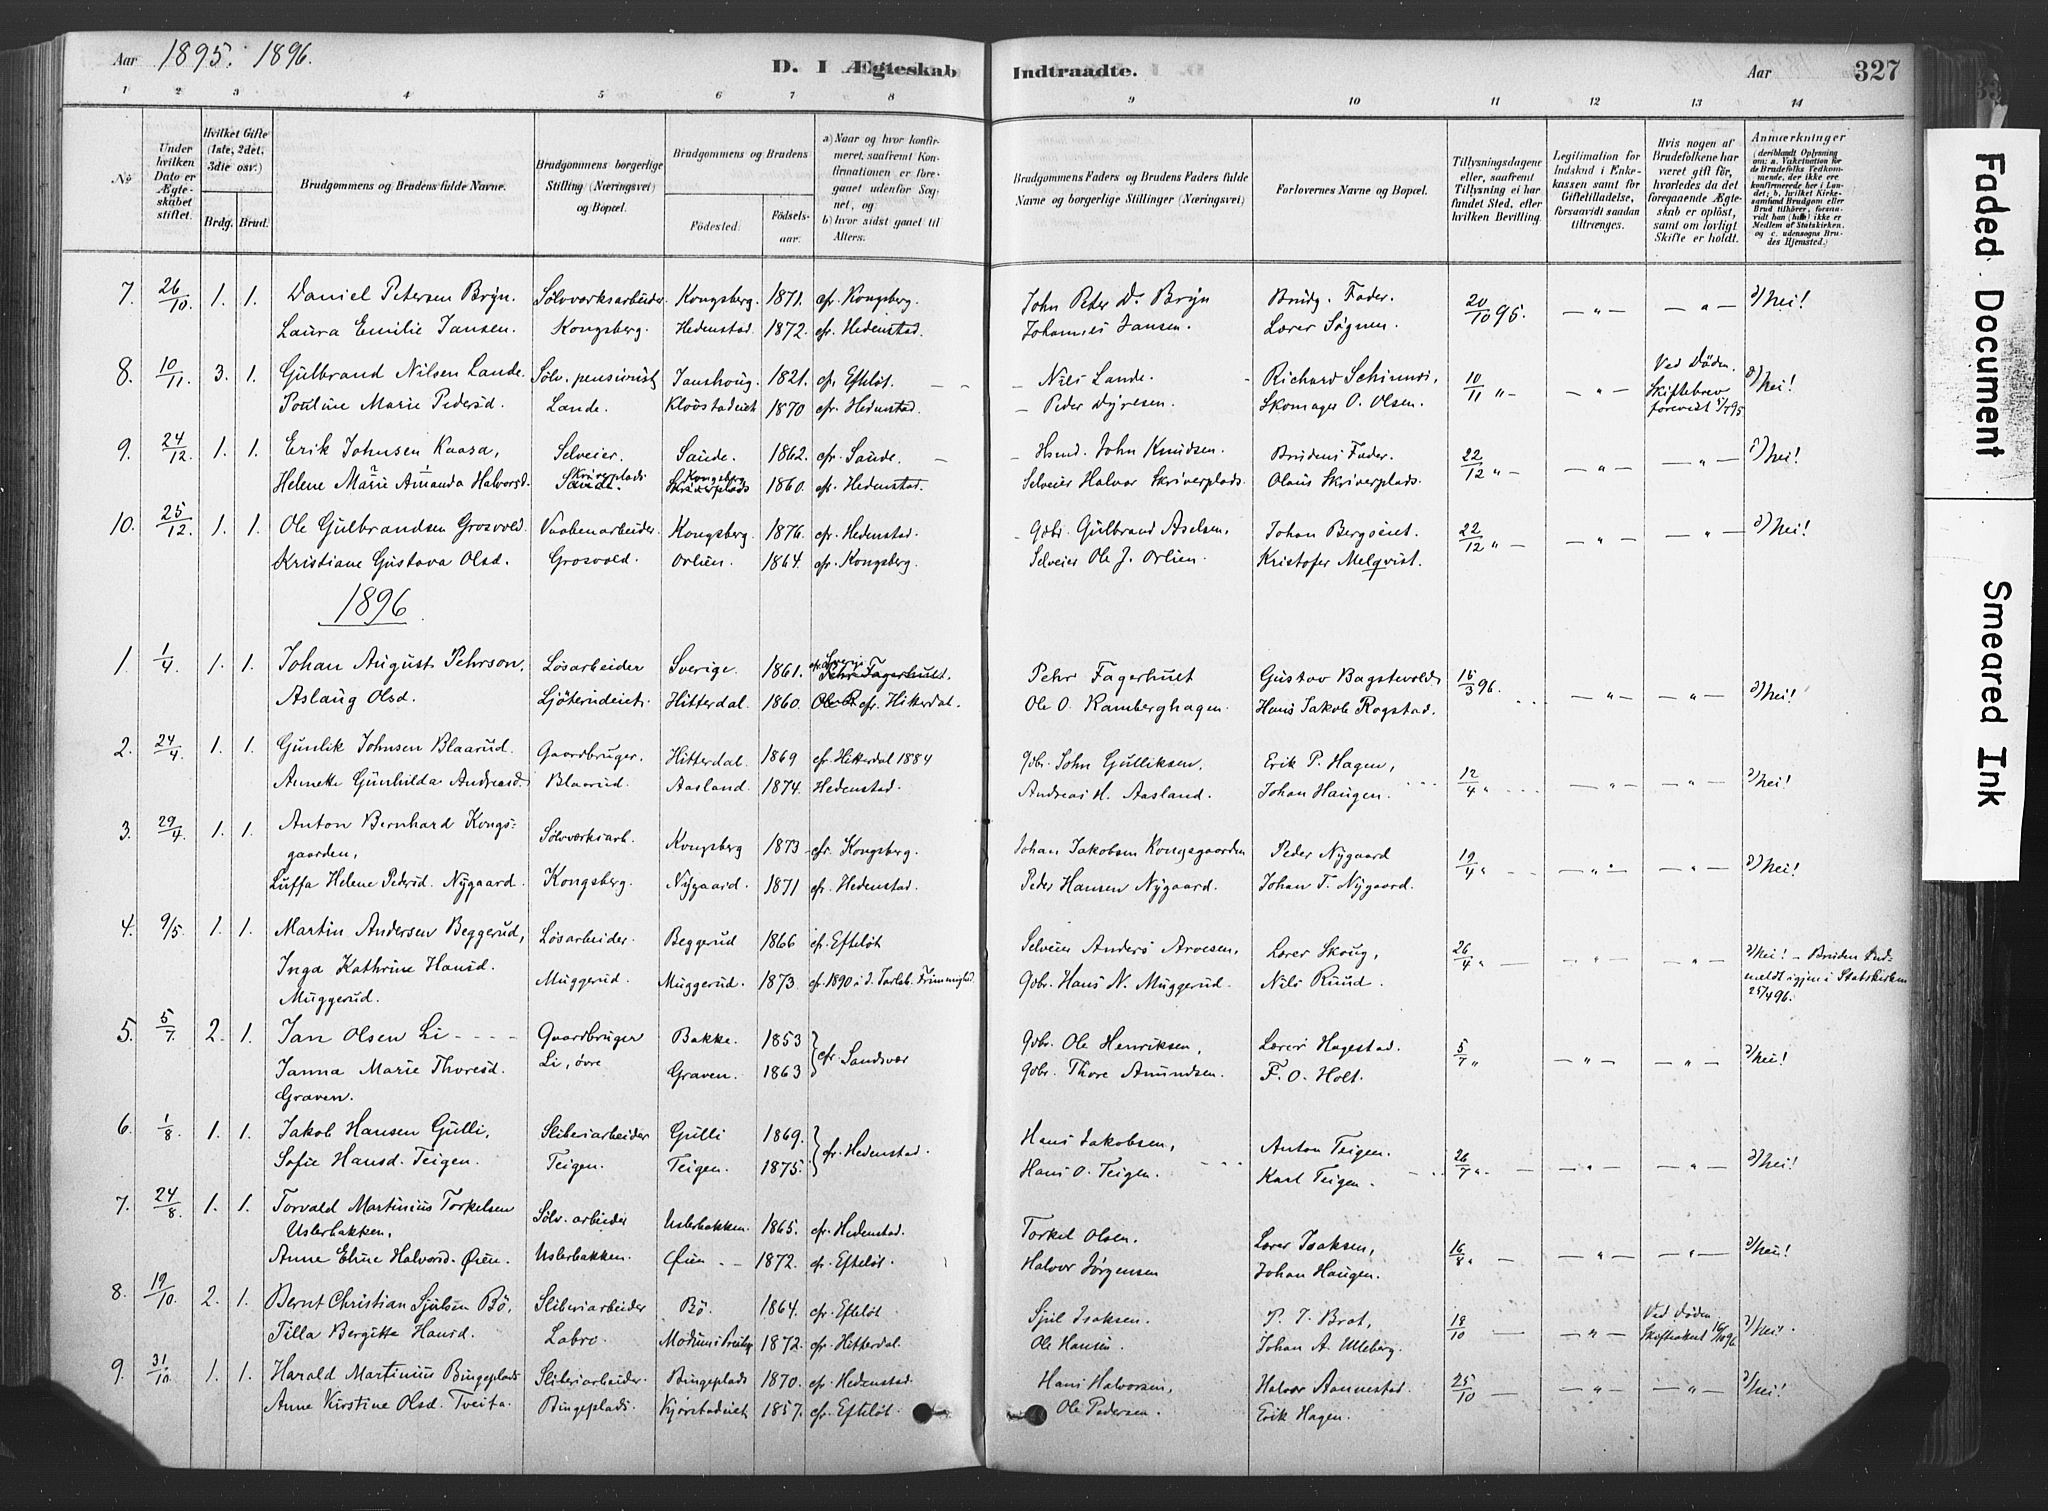 Aar 1895. 1896.
D. I Ægteskab Indtraadte.
Aar 327
1 2 3 4 5 6 7 8 9 10 11 12 13 14
No
Under hvilken Dato er Ægteskabet stiftet.
Hvilket Gifte (1ste, 2det, 3die osv.)
Brdg. Brud.
Brudgommens og Brudens fulde Navne.
Brudgommens borgerlige Stilling (Næringsvei) og Bopæl.
Brudgommens og Brudens
Fødested.
Fødselsaar.
a) Naar og hvor konfirmeret, saafremt Konfirmationen er foregaaet udenfor Sognet, og
b) hvor sidst gaaet til Alters.
Brudgommens Faders og Brudens Faders fulde Navne og borgerlige Stillinger (Næringsvei)
Forlovernes Navne og Bopæl.
Tillysningsdagene eller, saafremt Tillysning ei har fundet Sted, efter hvilken Bevilling.
Legitimation for Indskud i Enkekassen samt for Giftetilladelse, forsaavidt saadan tiltrænges.
Hvis nogen af Brudefolkene har været gift før, hvorledes da det foregaaende Ægteskab er opløst, samt om lovligt Skifte er holdt.
Anmærkninger
(deriblandt Oplysning om: a. Vakcination for de Brudefolks Vedkommende, der ikke ere konfirmerede her i Landet; b. hvilket Kirkesamfund Brudgom eller Brud tilhører, forsaavidt han (hun) ikke er Medlem af Statskirken, og c. udensogns Brudes Hjemsted.)
7. 26/10 1. 1. Daniel Petersen Bryn. Sølvværksarbeider Kongsberg. 1871. cfr. Kongsberg. John Peter D. Bryn Brudg. Fader. 20/10 95. — " — — " — a) Nei!
Laura Emilie Jansen. Kongsberg. Hedenstad. 1872. cfr. Hedenstad. Johannes Jansen. Lærer Søgnen.
8. 10/11. 3. 1. Gulbrand Nilsen Lande. Sølv. pensionist Janshoug. 1821. cfr. Efteløt. — — - Nils Lande. Richard Schirmes, 10/11 " - — " — Ved Døden. a) Nei!
Pouline Marie Pedersd. Lande. 1870 cfr. Hedenstad. - Peder Dyresen. Skomager O. Olsen. Skiftebrev forevist
9. 24/12 1. 1. Erik Johnsen Kaasa, Selveier. Saude. 1862. cfr. Saude. — - Hsmd. John Knudsen. Brudens Fader. 22/12 " - — " — — " — a) Nei!
Helene Marie Amanda Halvorsd. Skriverplads Kongsberg Skriverplads 1860. cfr. Hedenstad. Selveier Halvor Skriverplads. Olaus Skriverplads.
10. 25/12. 1. 1. Ole Gulbrandsen Grosvold. Vaabenarbeider. Kongsberg. 1876. cfr. Hedenstad. - Gdbr. Gulbrand Aselsen, Johan Bergseiet. 22/12 " — — " — — " — a) Nei!
Kristiane Gustava Olsd. Grosvold. Orlien. 1864. cfr. Kongsberg. Selveier Ole J. Orlien. Kristofer Melqvist.
1896
1. 1/4 1. 1. Johan August Pehrson. Løsarbeider Sverige. 1861. cfr. Sverig Pehr Fagerhult. Pehr Fagerhult Gustav Bagstevold 15/3 96. — " — — " — a) Nei!
Aslaug Olsd. Ljøterudeiet. Hitterdal. 1860. cfr. Hitterdal. Ole O. Ramberghagen. Hans Jakob Rogstad.
2. 24/4 1. 1. Gunlik Johnsen Blaarud. Gaardbruger. Hitterdal. 1869 cfr. Hitterdal 1884 Gdbr. John Gulliksen, Erik P. Hagen, 12/4 " — " — — " — a) Nei!
Annette Gunhilda Andreasd. Blaarud. Aasland. 1874. Hedenstad. Andreas H. Aasland. Johan Haugen.
3. 29/4. 1. 1. Anton Bernhard Kongs-
gaarden, Sølvværksarb. Kongsberg 1873 cfr. Kongsberg. Johan Jakobsen Kongsgaarden Peder Nygaard 19/4 " — " — — " — a) Nei!
Luffa Helene Pedersd. Nygaard. Kongsberg. Nygaard. 1871 cfr. Hedenstad. Peder Hansen Nygaard. Johan T. Nygaard.
4. 9/5. 1. 1. Martin Andersen Beggerud, Løsarbeider. Beggerud 1866 cfr. Efteløt Selveier Anders Arvesen, Lærer Skoug, 26/4 " — — " — — " — a) Nei! - Bruden ind-
Inga Kathrine Hansd. Muggerud. Muggerud. 1873. cfr. 1890 i d. Jarlsb. Frimenighed Gdbr. Hans N. Muggerud. Nils Ruud. meldt igjen i Statskirken
Muggerud. 25/4 96.
5. 5/7. 2. 1. Jan Olsen Li Gaardbruger Bakke. 1853 cfr. Sandsvær Gdbr. Ole Henriksen, Lærer Hagestad. 5/7 " — " — — " — a) Nei!
Janna Marie Thoresd. Li, øvre Graven. 1863 Gdbr. Thore Amundsen. F. O. Holt.
Graven.
6. 1/8. 1. 1. Jakob Hansen Gulli, Sliberiarbeider Gulli 1869. cfr. Hedenstad. Hans Jakobsen, Anton Teigen. 26/7 " — — " — — " — a) Nei!
Sofie Hansd. Teigen. Teigen. Teigen. 1875. Hans O. Teigen. Karl Teigen.
7. 24/8. 1. 1. Torvald Martinius Torkelsen
Uslerbakken, Sølv. arbeider Uslerbakken. 1865. cfr. Hedenstad. Torkel Olsen. Lærer Isaksen, 16/8 " — — " — — " — a) Nei!
Anne Elise Halvorsd. Øien. Uslerbakken. Øien 1872. cfr. Efteløt. Halvor Jørgensen Johan Haugen.
8. 19/10. 2. 1. Bernt Christian Sjulsen Bö, Sliberiarbeider Bö. 1864. cfr. Efteløt Sjul Isaksen. P. T. Brat, 18/10 — — " — Ved Døden. a) Nei.
Tilla Bergitte Hansd. Labro. 1872. cfr. Hitterdal. Ole Hansen. Johan A. Ulleberg. Skifteakt
9. 31/10. 1. 1. Harald Martinius Bingeplads Sliberiarbeider. Bingeplads 1870. cfr. Hedenstad. Hans Halvorsen, Halvor Aannestad. 25/10 — — " — — " — a) Nei!
Anne Kirstine Olsd. Tveita. Bingeplads. Kjørstadeiet 1857. cfr. Efteløt. Ole Pedersen. Erik Hagen.
Faded Document
Smeared Ink